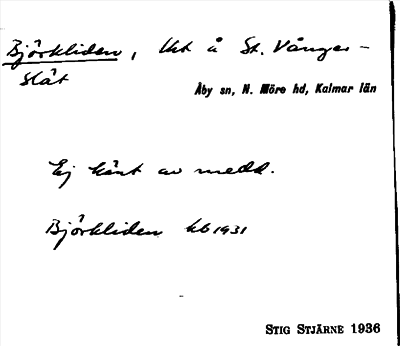 Björkliden, lht å St. Vånger-
slät
Åby sn, N. Möre hd, Kalmar län
Ej känt av medd.
Björkliden kb 1931
STIG STJÄRNE 1936